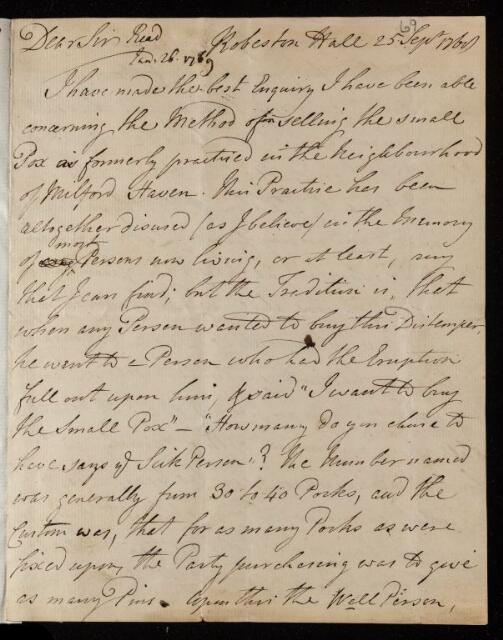 69
Dear Sir Read Robeston Hall 25 Sept 1768
Jan. 26. 1769
I have made the best Enquiry I have been able
concerning the Method of selling the small
Pox as formerly practised in the Neighbourhood
of Milford Haven. This Practice has been
altogether disused (as I believe) in the Memory
most
of any Persons now living, or at least, any
that I can find; but the Tradition is, that
when any Person wanted to buy this Distemper,
he went to a Person who had the Eruption
full out upon him, & said "I want to buy
the small Pox" — "How many do you chuse to
have says ye Sick Person"? The Number named
was generally from 30 to 40 Pocks, and the
Custom was, that for as many Pocks as were
fixed upon, the Party purchasing was to give
as many Pins. Upon this the Well Person,